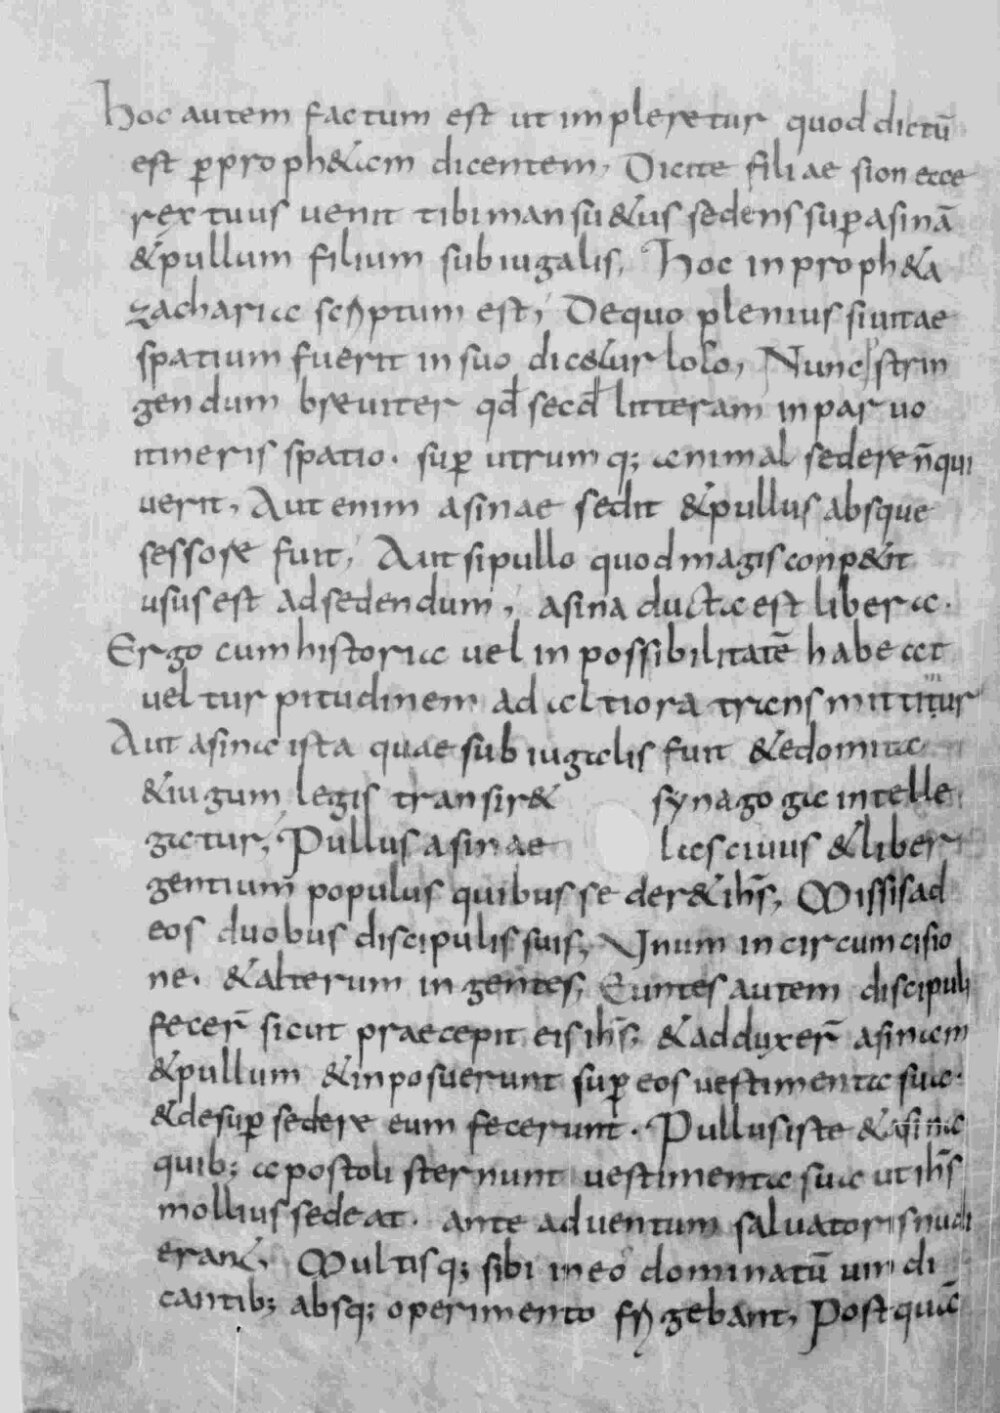 hoc autem factum est ut impleretur quod dictū
est ꝑ proph&am dicentem. Dicite filiae sion ecce
rex tuus uenit tibi mansu&us sedens suꝑ asinā
&pullum filium subiugalis. Hoc in proph&a
zacharia scriptum est; De quo plenius si uitae
spatium fuerit in suo dicetur loco, Nunc strin
gendum breuiter qđ secđ litteram in paruo
itineris spatio. suꝑ utrumq; animal sedere ñ qui
uerit, Aut enim asinae sedit &pullus absque
sessore fuit, Aut si pullo quod magis conp&it
usus est ad sedendum, asina ducta est libera.
Ergo cum historia uel inpossibilitatē habeat
uel turpitudinem ad altiora transmittimur
Aut asina ista quae subiugalis fuit &edomita
&iugum legis transir& synagoga intelle
gatur, Pullus asinae lasciuus &liber
gentium populus quibus seder& ih̄s, Missis ad
eos duobus discipulis suis, Vnum in circumcisio
ne. &alterum in gentes; Euntes autem discipuli
fecer̄ sicut praecepit eis ih̄s; &adduxer̄ asinam
&pullum &inposuerunt suꝑ eos uestimenta sua.
&desuꝑ sedere eum fecerunt. Pullus iste &asina
quib; apostoli sternunt uestimenta sua ut ih̄s
mollius sedeat. ante aduentum saluatoris nudi
erant, Multisq; sibi in eo dominatū uindi
cantib; absq; operimento frigebant, Postquā